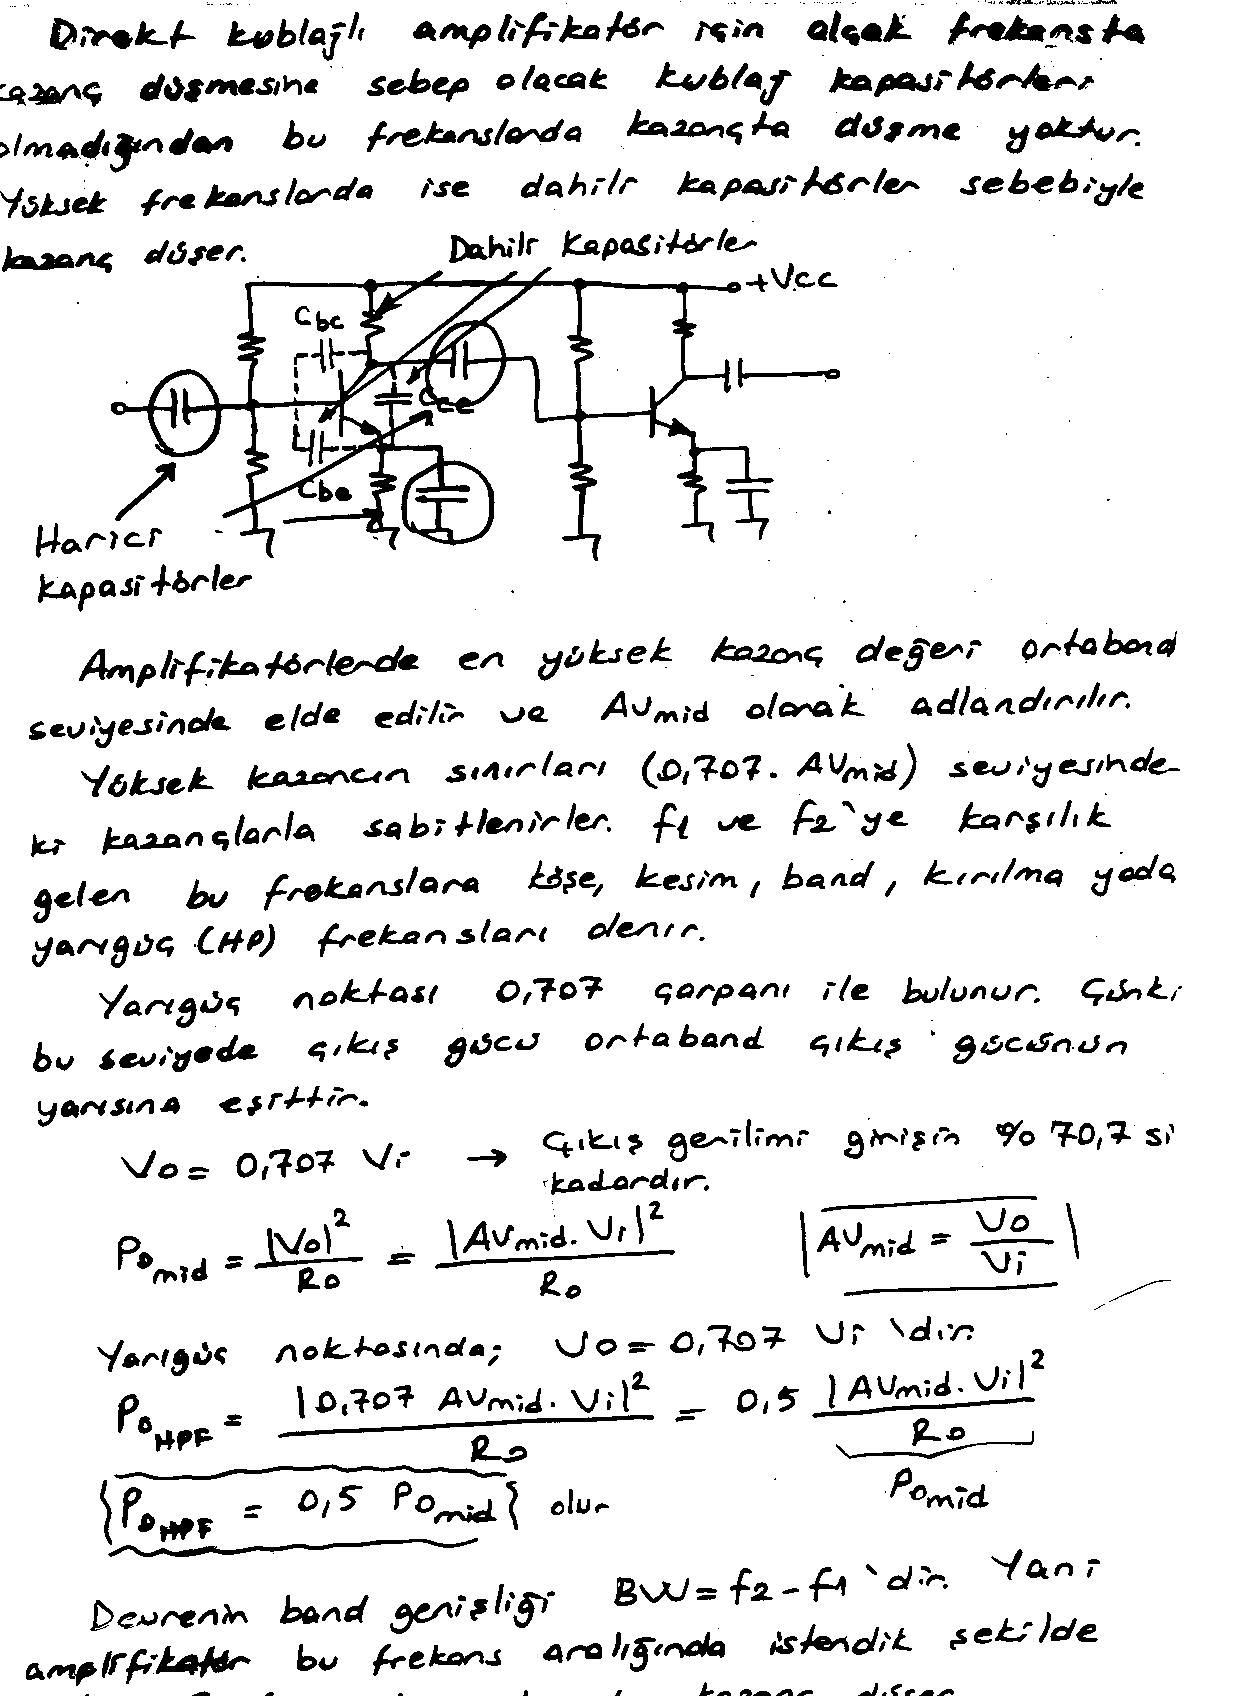 Direkt kublajlı amplifikatör için alçak frekansta
kazanç düşmesine sebep olacak kublaj kapasitörleri
olmadığından bu frekanslarda kazançta düşme yoktur.
Yüksek frekanslarda ise dahili kapasitörler sebebiyle
kazanç düşer.
Dahili Kapasitörler
+Vcc
Cbc
Cce
Cbe
Harici
kapasitörler
Amplifikatörlerde en yüksek kazanç değeri ortaband
seviyesinde elde edilir ve AVmid olarak adlandırılır.
Yüksek kazancın sınırları (0,707. AVmid) seviyesinde-
ki kazançlarla sabitlenirler. f1 ve f2`ye karşılık
gelen bu frekanslara köşe, kesim, band, kırılma yada
yarıgüç (HP) frekansları denir.
Yarıgüç noktası 0,707 çarpanı ile bulunur. Çünki
bu seviyede çıkış gücü ortaband çıkış gücünün
yarısına eşittir.
Vo = 0,707 Vi → Çıkış gerilimi girişin %70,7 si
kadardır.
Pomid = |Vo|² / Ro = |AVmid. Vi|² / Ro |AVmid = Vo / Vi|
Yarıgüç noktasında; Vo = 0,707 Vi 'dir.
PoHPF = |0,707 AVmid. Vi|² / Ro = 0,5 |AVmid. Vi|² / Ro
Pomid
{PoHPF = 0,5 Pomid} olur
Devrenin band genişliği BW = f2 - f1 `dir. Yani
amplifikatör bu frekans aralığında istendik şekilde
kazanç düşer